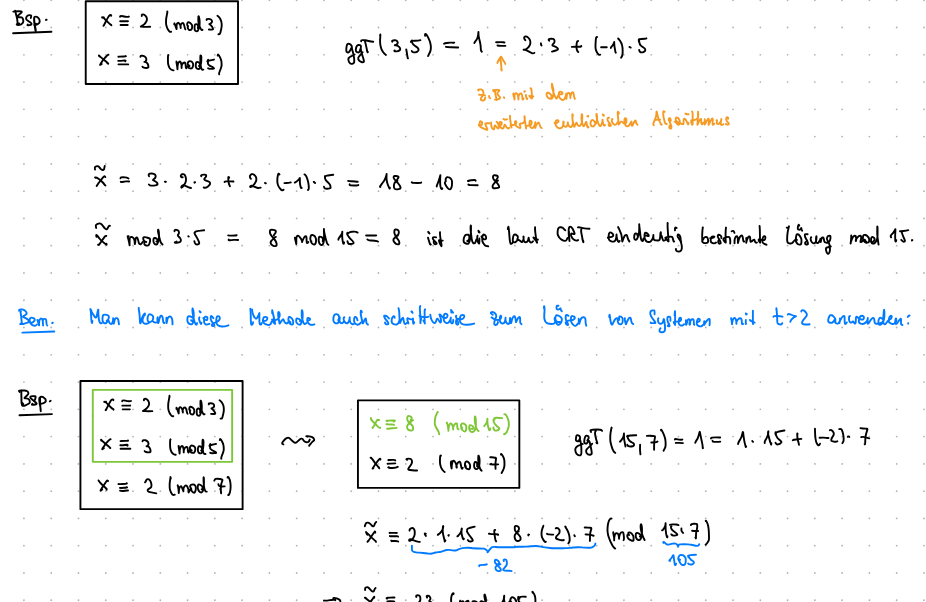 Bsp.
x ≡ 2 (mod 3)
x ≡ 3 (mod 5)
ggT(3,5) = 1 = 2·3 + (-1)·5
z.B. mit dem
erweiterten euklidischen Algorithmus
x̃ = 3·2·3 + 2·(-1)·5 = 18 - 10 = 8
x̃ mod 3·5 = 8 mod 15 = 8 ist die laut CRT eindeutig bestimmte Lösung mod 15.
Bem. Man kann diese Methode auch schrittweise zum Lösen von Systemen mit t>2 anwenden:
Bsp.
x ≡ 2 (mod 3)
x ≡ 3 (mod 5)
x ≡ 2 (mod 7)
⇝
x ≡ 8 (mod 15)
x ≡ 2 (mod 7)
ggT(15,7) = 1 = 1·15 + (-2)·7
x̃ ≡ 2·1·15 + 8·(-2)·7 (mod 15·7)
-82
105
⇒ x̃ ≡ 23 (mod 105)